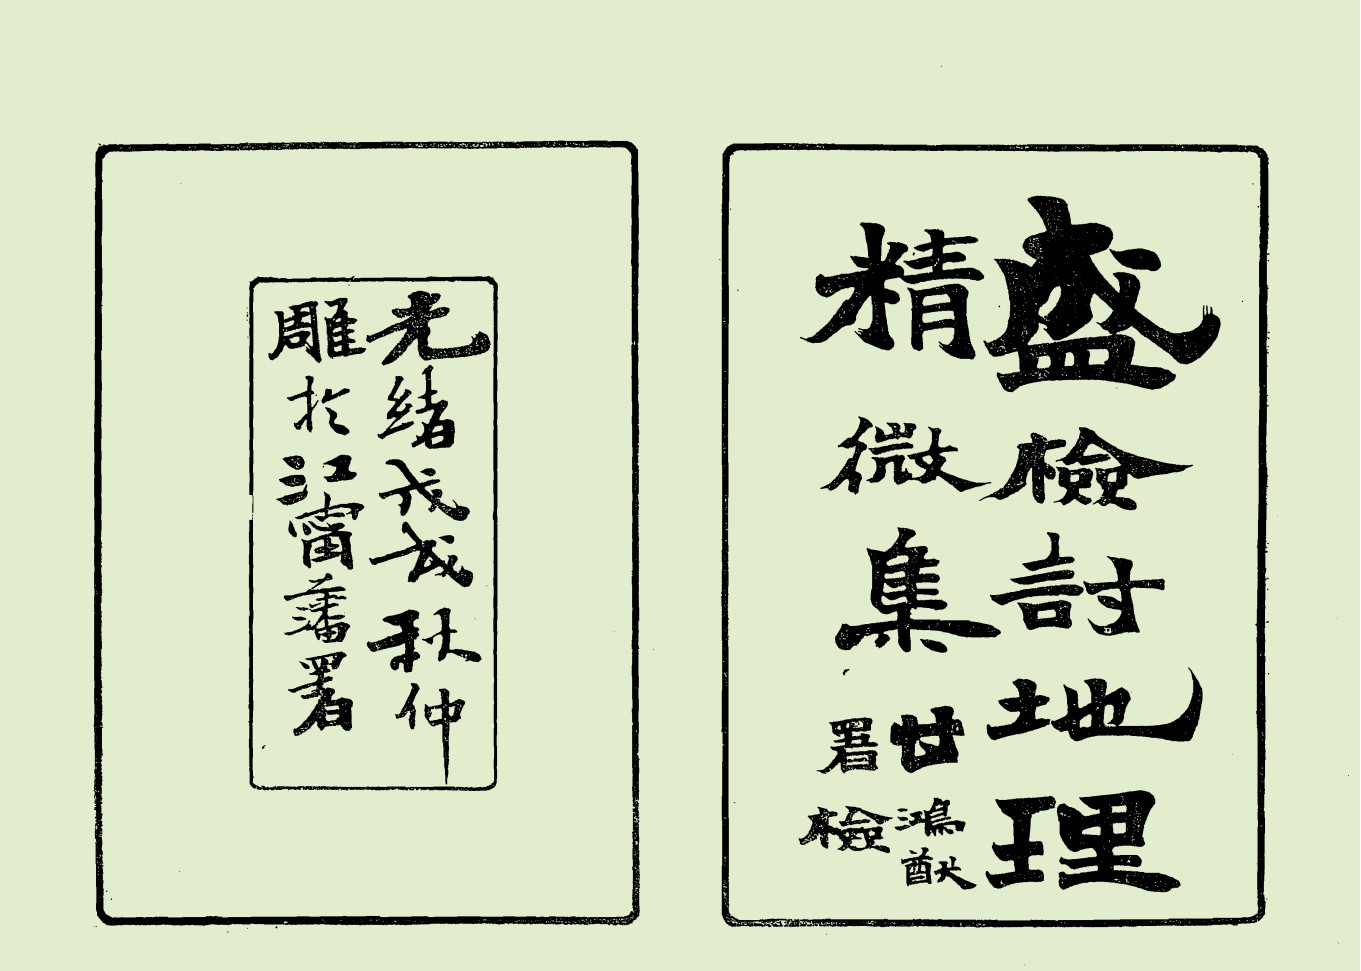 盛檢討地理
精微集
甘鴻猷
署檢
光緒戊戌秋仲
雕於江甯藩署